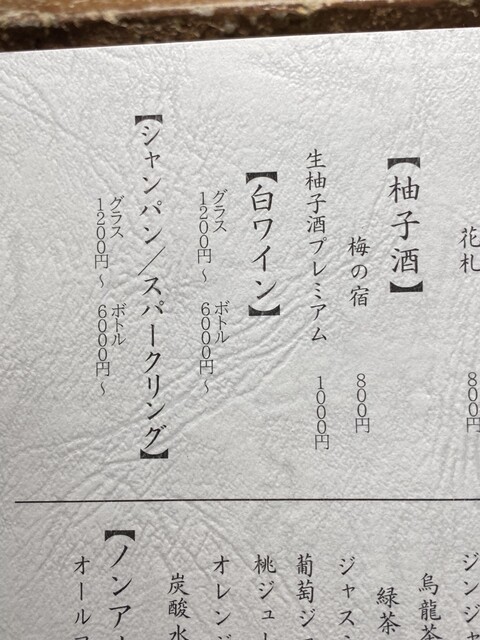 花札 800円
【柚子酒】
梅の宿 800円
生柚子酒プレミアム 1000円
【白ワイン】
グラス 1200円〜 ボトル 6000円〜
【シャンパン／スパークリング】
グラス 1200円〜 ボトル 6000円〜
ジンジャ
烏龍茶
緑茶
ジャス
葡萄ジ
桃ジュー
オレンジ
炭酸水
【ノンア
オール